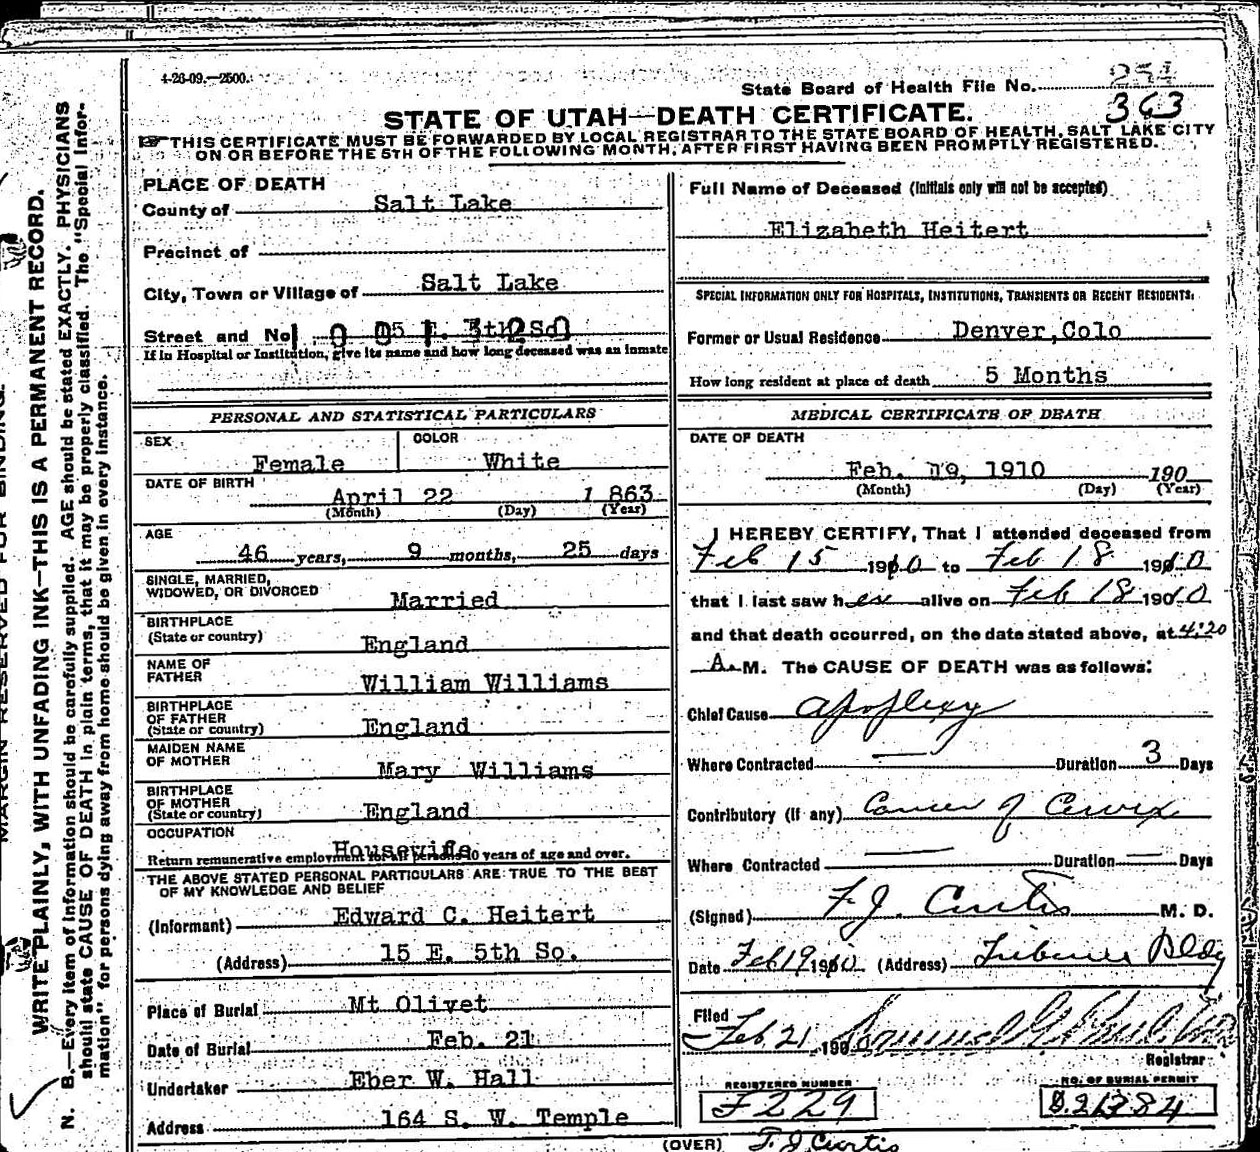 4-26-09.—2500.
State Board of Health File No. 251
363
STATE OF UTAH—DEATH CERTIFICATE.
THIS CERTIFICATE MUST BE FORWARDED BY LOCAL REGISTRAR TO THE STATE BOARD OF HEALTH, SALT LAKE CITY
ON OR BEFORE THE 5TH OF THE FOLLOWING MONTH, AFTER FIRST HAVING BEEN PROMPTLY REGISTERED.
MARGIN RESERVED FOR BINDING.
WRITE PLAINLY, WITH UNFADING INK—THIS IS A PERMANENT RECORD.
N. B.—Every item of information should be carefully supplied. AGE should be stated EXACTLY. PHYSICIANS
should state CAUSE OF DEATH in plain terms, that it may be properly classified. The "Special Infor-
mation" for persons dying away from home should be given in every instance.
PLACE OF DEATH
County of Salt Lake
Precinct of
City, Town or Village of Salt Lake
Street and No. 15 E. 5th So
If in Hospital or Institution, give its name and how long deceased was an inmate
PERSONAL AND STATISTICAL PARTICULARS
SEX Female COLOR White
DATE OF BIRTH April 22 1 863
(Month) (Day) (Year)
AGE 46 years, 9 months, 25 days
SINGLE, MARRIED,
WIDOWED, OR DIVORCED Married
BIRTHPLACE
(State or country) England
NAME OF
FATHER William Williams
BIRTHPLACE
OF FATHER
(State or country) England
MAIDEN NAME
OF MOTHER Mary Williams
BIRTHPLACE
OF MOTHER
(State or country) England
OCCUPATION Housewife
Return remunerative employment for all persons 10 years of age and over.
THE ABOVE STATED PERSONAL PARTICULARS ARE TRUE TO THE BEST
OF MY KNOWLEDGE AND BELIEF
(Informant) Edward C. Heitert
(Address) 15 E. 5th So.
Place of Burial Mt Olivet
Date of Burial Feb. 21
Undertaker Eber W. Hall
Address 164 S. W. Temple
Full Name of Deceased (Initials only will not be accepted)
Elizabeth Heitert
SPECIAL INFORMATION ONLY FOR HOSPITALS, INSTITUTIONS, TRANSIENTS OR RECENT RESIDENTS:
Former or Usual Residence Denver, Colo
How long resident at place of death 5 Months
MEDICAL CERTIFICATE OF DEATH
DATE OF DEATH
Feb. 19, 1910 190
(Month) (Day) (Year)
I HEREBY CERTIFY, That I attended deceased from
Feb 15 1910 to Feb 18 1910
that I last saw her alive on Feb 18 1910
and that death occurred, on the date stated above, at 4:20
A. M. The CAUSE OF DEATH was as follows:
Chief Cause Apoplexy
Where Contracted — Duration 3 Days
Contributory (if any) Cancer of Cervix
Where Contracted — Duration — Days
(Signed) F. J. Curtis M. D.
Date Feb 19 1910 (Address) Tribune Bldg
Filed Feb 21 190 Samuel G.
Registrar
REGISTERED NUMBER
F229
NO. OF BURIAL PERMIT
(OVER) F. J. Curtis